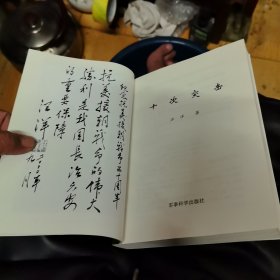 纪念抗美援朝战争五十周年
抗美援朝战争的伟大
胜利是我国长治久安
的重要保障
江洋
九月
十次突击
军事科学出版社